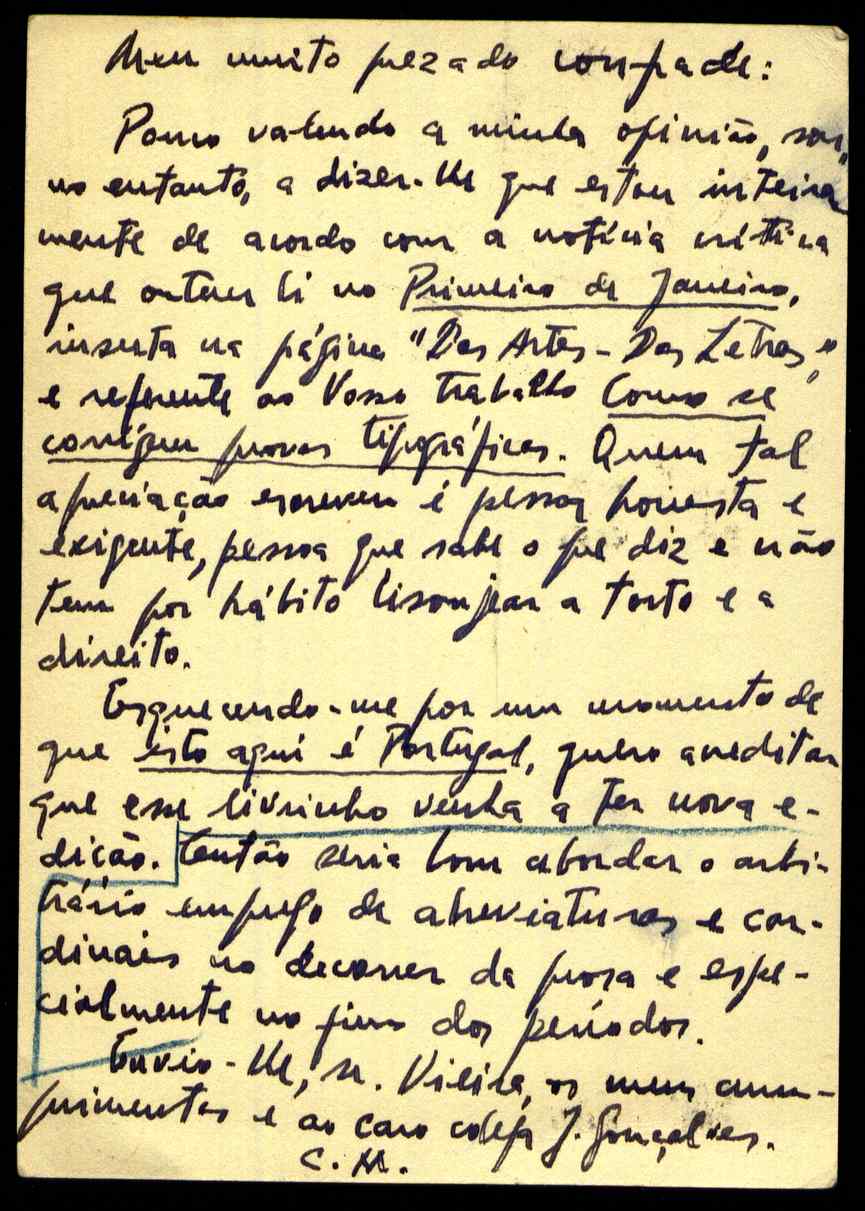 Meu muito prezado compadre:
Pouco valendo a minha opinião, sou,
no entanto, a dizer-lhe que estou inteira
mente de acordo com a notícia crítica
que ontem li no Primeiro de Janeiro,
inserta na página "Das Artes - Das Letras,"
e referente ao Vosso trabalho Como se
corrigem provas tipográficas. Quem tal
apreciação escreveu é pessoa honesta e
exigente, pessoa que sabe o que diz e não
tem por hábito lisonjear a torto e a
direito.
Esquecendo-me por um momento de
que isto aqui é Portugal, quero acreditar
que esse livrinho venha a ter nova e-
dição. Então seria bom abordar o arbi-
trário emprego de abreviaturas e car-
dinais no decorrer da prosa e espe-
cialmente no fim dos períodos.
Envio-lhe, sr. Vieira, os meus cum-
primentos e ao caro colega J. Gonçalves.
C. M.